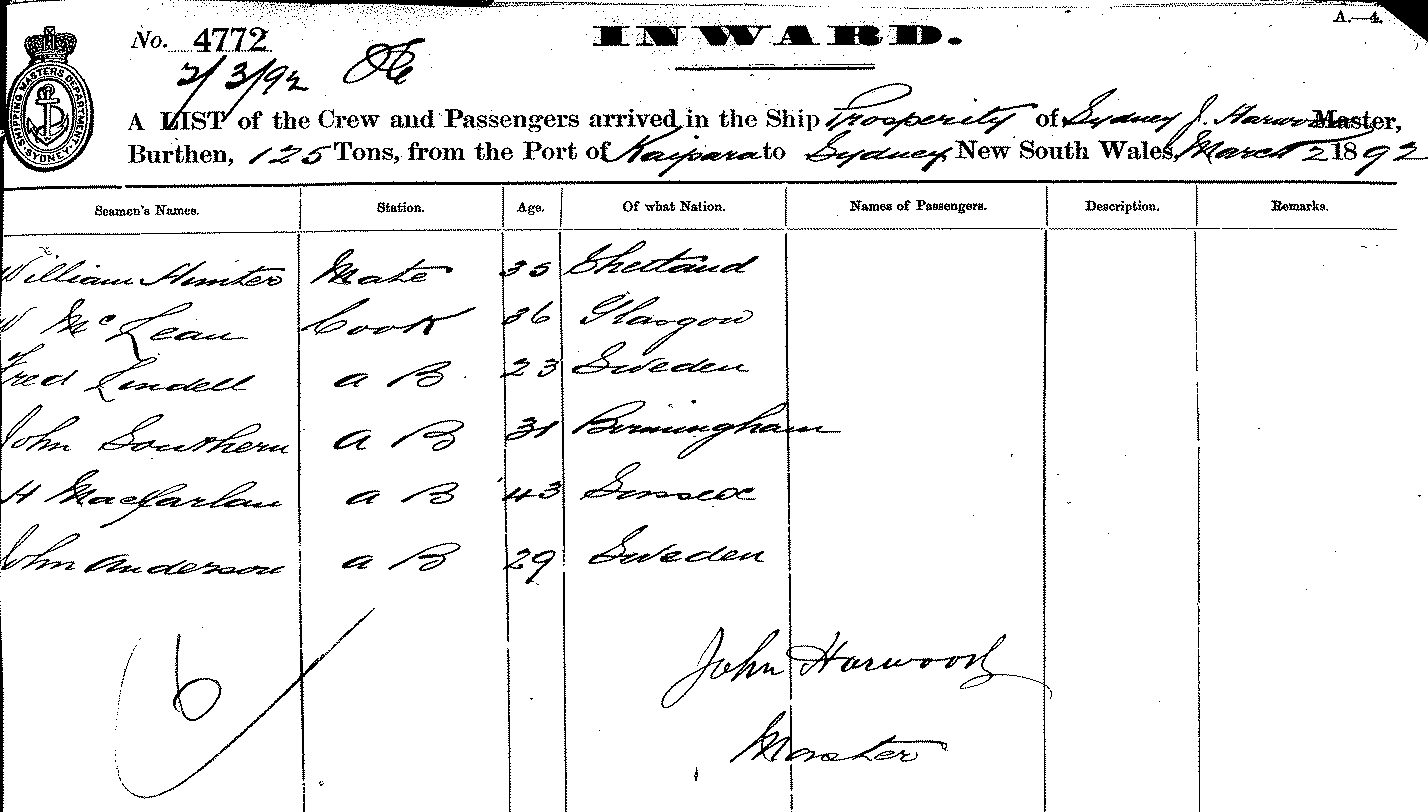 A.—4.
No. 4772
INWARD.
2/3/92
SHIPPING MASTERS DEPARTMENT SYDNEY
A LIST of the Crew and Passengers arrived in the Ship Prosperity of Sydney J. Harwood Master,
Burthen, 125 Tons, from the Port of Kaipara to Sydney, New South Wales, March 2 1892
Seamen's Names. Station. Age. Of what Nation. Names of Passengers. Description. Remarks.
William Hunter Mate 35 Shetland
W McLean Cook 36 Glasgow
Fred Lindell a B. 23 Sweden
John Southern a B 31 Birmingham
H Macfarlan a B 43 Sussex
John Anderson a B 29 Sweden
6
John Harwood
Master